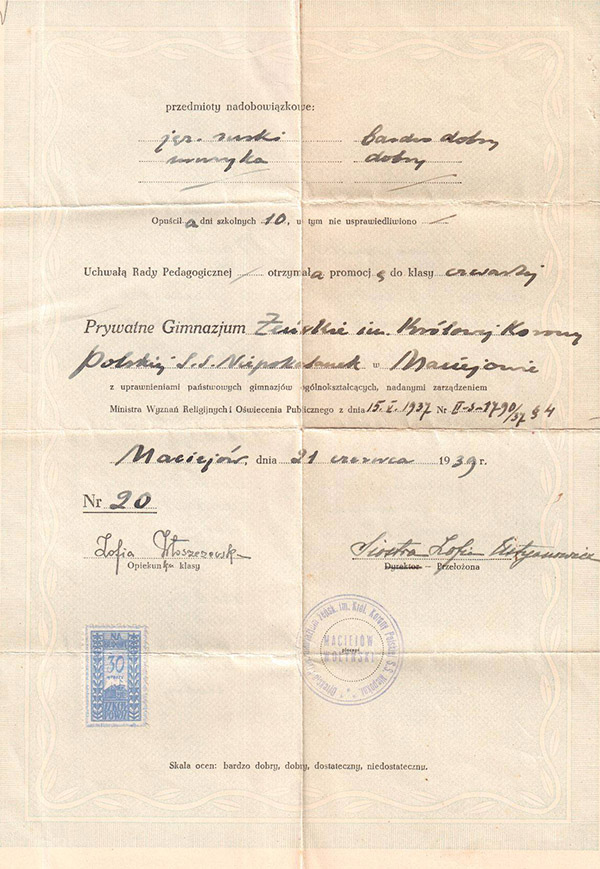 przedmioty nadobowiązkowe:
jęz. ruski bardzo dobry
muzyka dobry
Opuścił a dni szkolnych 10, w tym nie usprawiedliwiono
Uchwałą Rady Pedagogicznej otrzymała promocję do klasy czwartej
Prywatne Gimnazjum Żeńskie im. Królowej Korony
Polskiej S.S. Niepokalanek w Maciejowie
z uprawnieniami państwowych gimnazjów ogólnokształcących, nadanymi zarządzeniem
Ministra Wyznań Religijnych i Oświecenia Publicznego z dnia 15. V. 1937 Nr II-S-1790/37 § 4
Maciejów, dnia 21 czerwca 1939 r.
Nr 20
Zofia Włoszczewsk
Siostra Zofia
Opiekunka klasy
Dyrektor — Przełożona
im. Król. Korony Polski S.S. Niepokal.
MACIEJÓW
pieczęć
WOŁYŃSKI
NA
BUDOWĘ
30
GROSZY
SZKÓŁ
Skala ocen: bardzo dobry, dobry, dostateczny, niedostateczny.